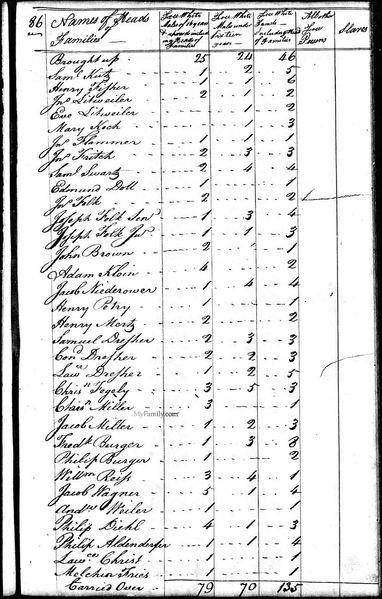 86 Names of Heads of Families | Free White Males of 16 years & upwards including Heads of Families | Free White Males under sixteen years | Free White Females including Heads of Families | All other Free Persons | Slaves
Brought up 25 24 46
Saml Kutz 1 2 5
Henry Fisher 1 1 6
Jno Litweiler 2 2
Eve Litweiler 1 2
Mary Koch 1 3
Jno Hammer 1 1 2
Jno Fritch 2 3 3
Saml Swartz 2 4 4
Edmund Doll 1 1
Jno Folk 2 2
Joseph Folk Senr 1 3 4
Joseph Folk Jur 1 1 3
John Brown 2 1
Adam Klein 4 2
Jacob Niederower 1 4 4
Henry Petry 1 1
Henry Mertz 2 2
Samuel Dresher 2 3 3
Cond Dresher 2 2 3
Lawce Dresher 1 2 5
Chrisn Fegely 3 5 3
Chrisn Miller 3 1
MyFamily.com
Jacob Miller 1 2 3
Fredk Burger 1 3 8
Philip Burger 1 2
Willm Reip 3 4 1
Jacob Wagner 5 1 4
Andw Weiler 1 1
Philip Diehl 4 1 3
Philip Aldenderfer 1 1 4
Lawce Christ 1 1
Melchior Fries 1 1
Carried Over 79 70 135